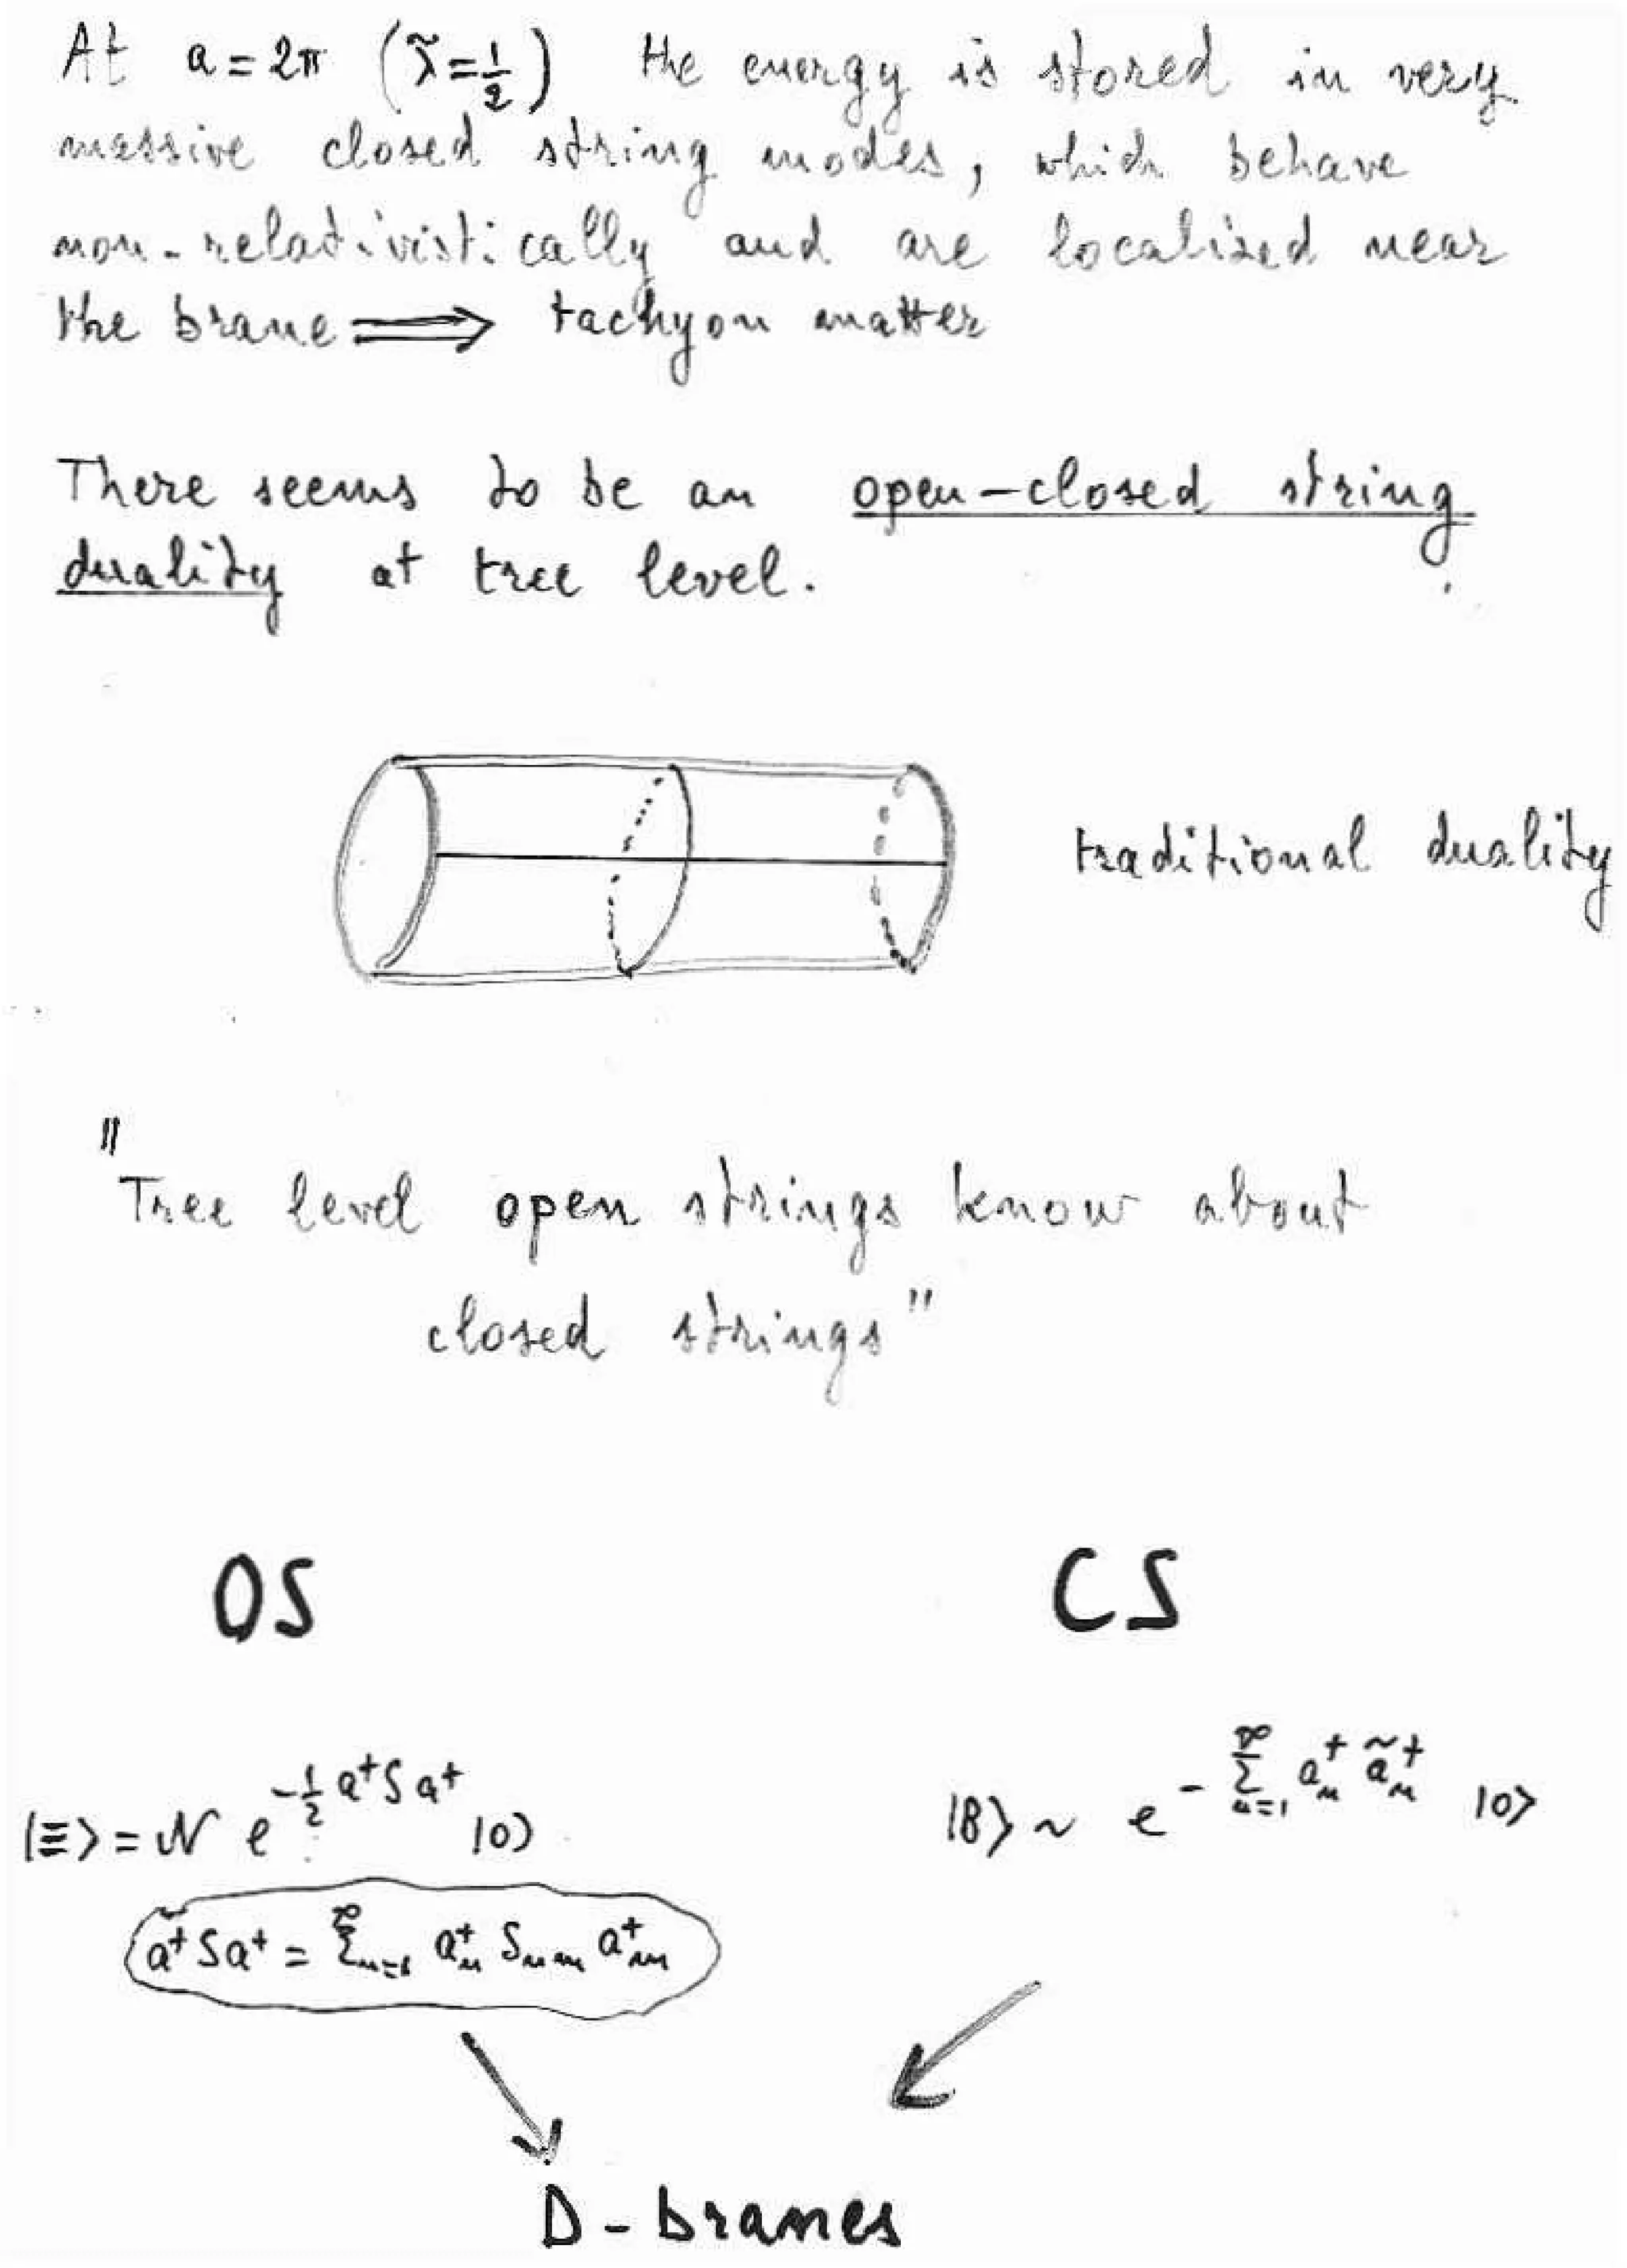 At a = 2π (λ̃ = 1/2) the energy is stored in very
massive closed string modes, which behave
non-relativistically and are localized near
the brane ⟹ tachyon matter
There seems to be an open-closed string
duality at tree level.
traditional duality
"Tree level open strings know about
closed strings"
OS CS
|Ξ⟩ = 𝒩 e^{-1/2 a†Sa†} |0⟩
|B⟩ ~ e^{-∑_{n=1}^∞ a_n† ã_n†} |0⟩
a†Sa† = ∑_{n=1}^∞ a_n† S_{nm} a_m†
D-branes